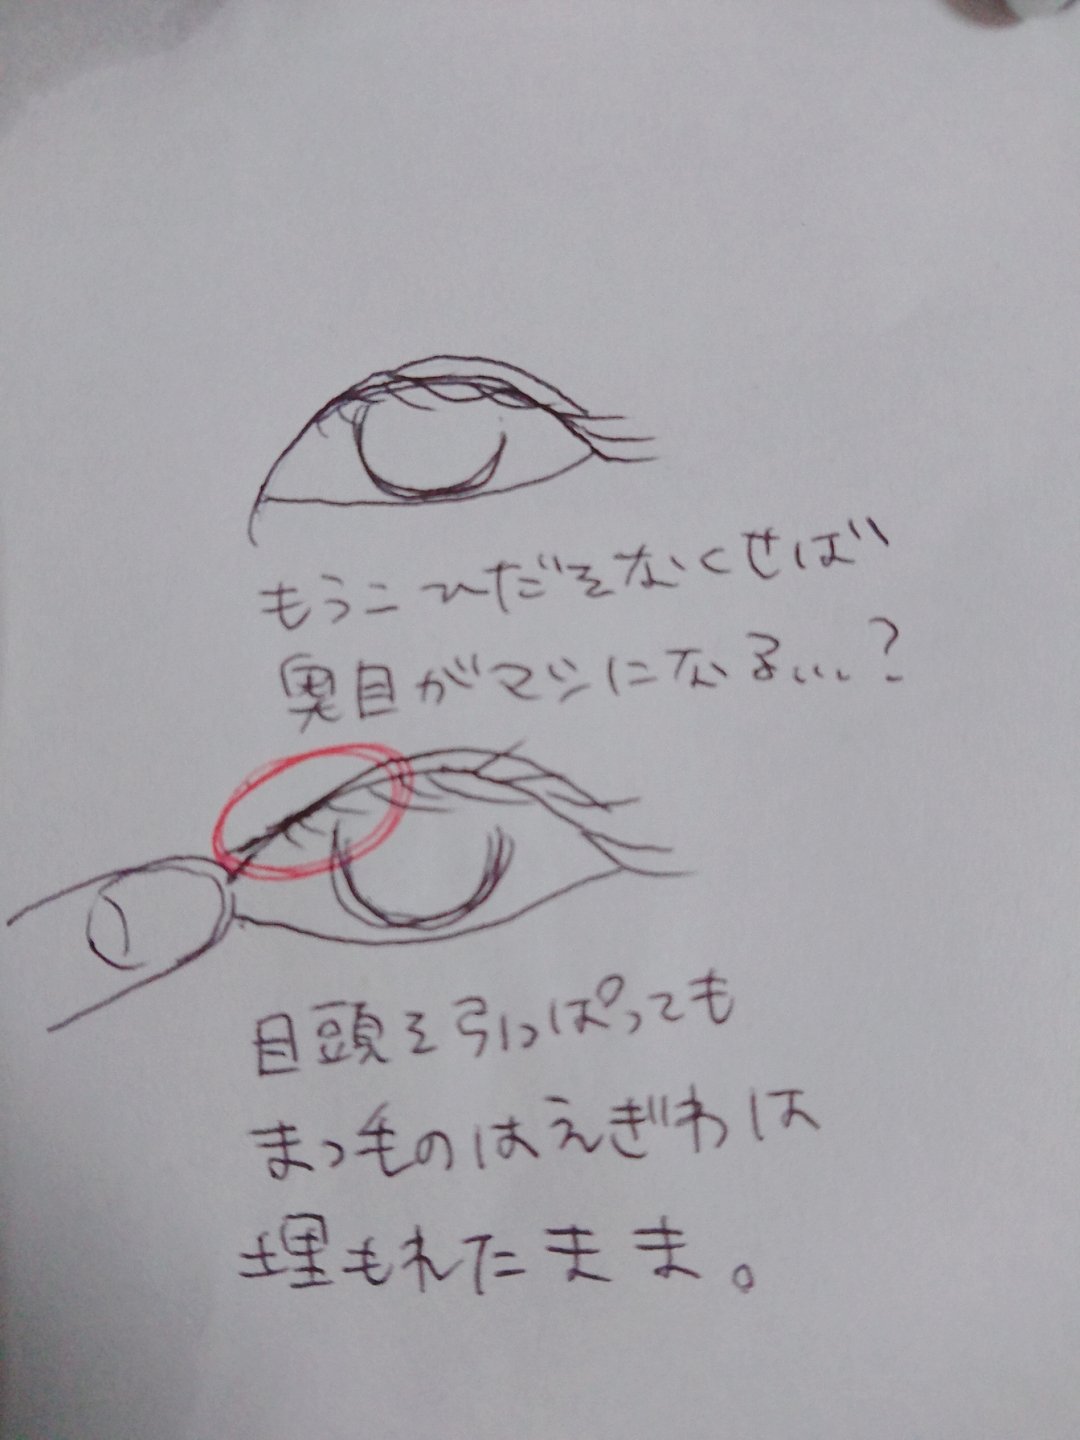 もうこひだをなくせば
奥目がマシになる...?
目頭を引っぱっても
まつ毛のはえぎわは
埋もれたまま。